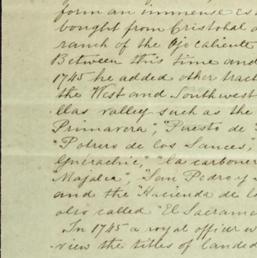 form an immense es
bought from Cristobal
ranch of the Ojo Caliente
Between this time and
1745 he added other tract
the West and Southwest
llas valley such as the
Primavera", "Puesto de
"Potrero de los Sauces,"
"las carboner
"San Pedro y
and the "Hacienda de
also called "El Sacrame
In 1745 a royal officer
view the titles of landed